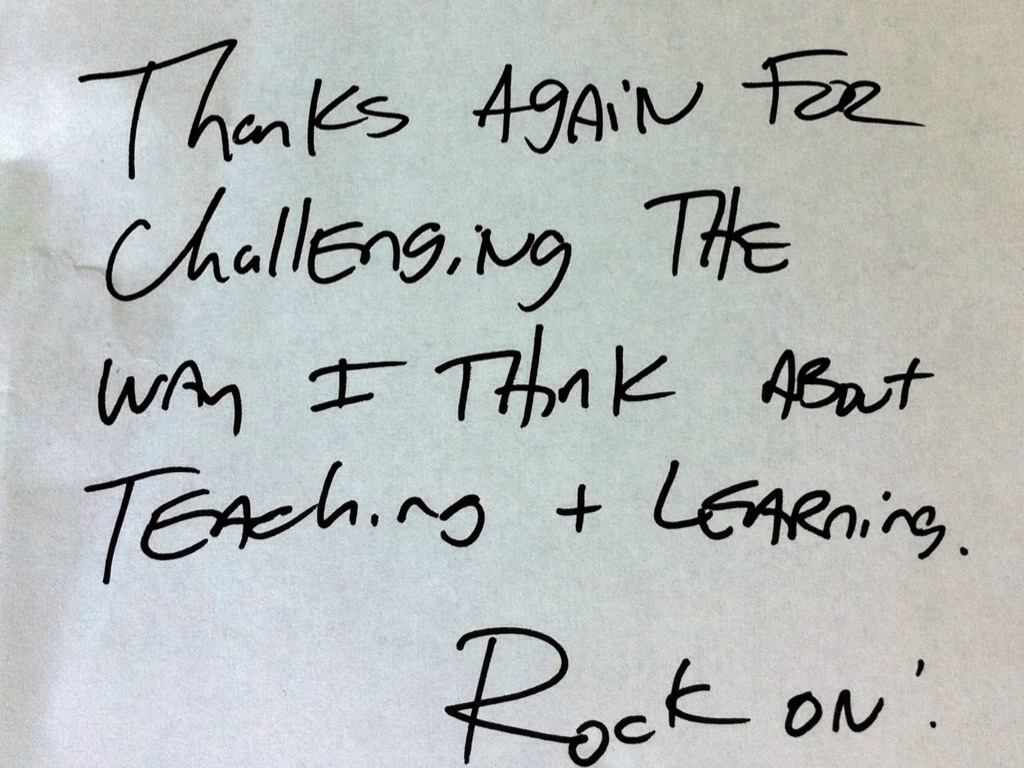 Thanks Again For
Challenging The
way I Think About
Teaching + Learning.
Rock on!